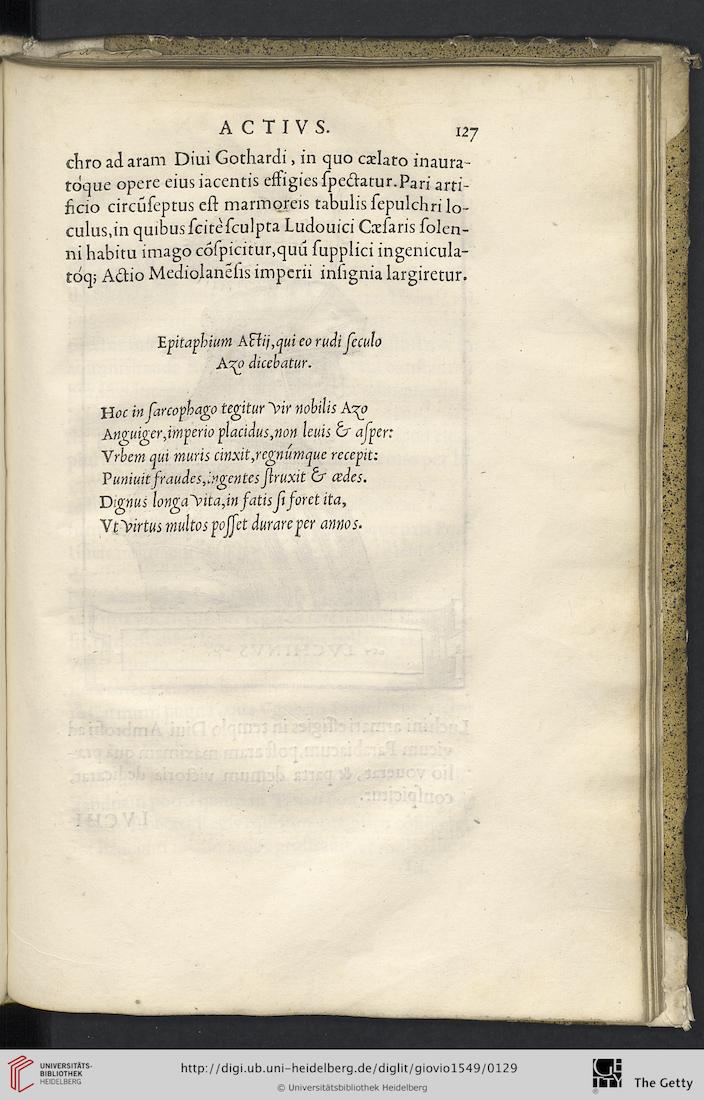 ACTIVS.
127
chro ad aram Diui Gothardi, in quo cælato inaura-
tóque opere eius iacentis effigies ſpectatur. Pari arti-
ficio circūſeptus eſt marmoreis tabulis ſepulchri lo-
culus, in quibus ſcitè ſculpta Ludouici Cæſaris ſolen-
ni habitu imago cóſpicitur, quū ſupplici ingenicula-
tóq; Actio Mediolanẽſis imperii inſignia largiretur.
Epitaphium Actij, qui eo rudi ſeculo
Azo dicebatur.
Hoc in ſarcophago tegitur vir nobilis Azo
Anguiger, imperio placidus, non leuis & aſper:
Vrbem qui muris cinxit, regnúmque recepit:
Puniuit fraudes, ingentes ſtruxit & ædes.
Dignus longa vita, in fatis ſi foret ita,
Vt virtus multos poſſet durare per annos.
LVCHINVS
Luchini armati effigies in templo Diui Ambroſii ad
vicum Parabiacum, poſt aram maximam quā præ-
lio vouerat, & parta demum victoria dedicarat,
conſpicitur.
LVCHI
UNIVERSITÄTS-
BIBLIOTHEK
HEIDELBERG
http://digi.ub.uni-heidelberg.de/diglit/giovio1549/0129
© Universitätsbibliothek Heidelberg
GETTY
The Getty